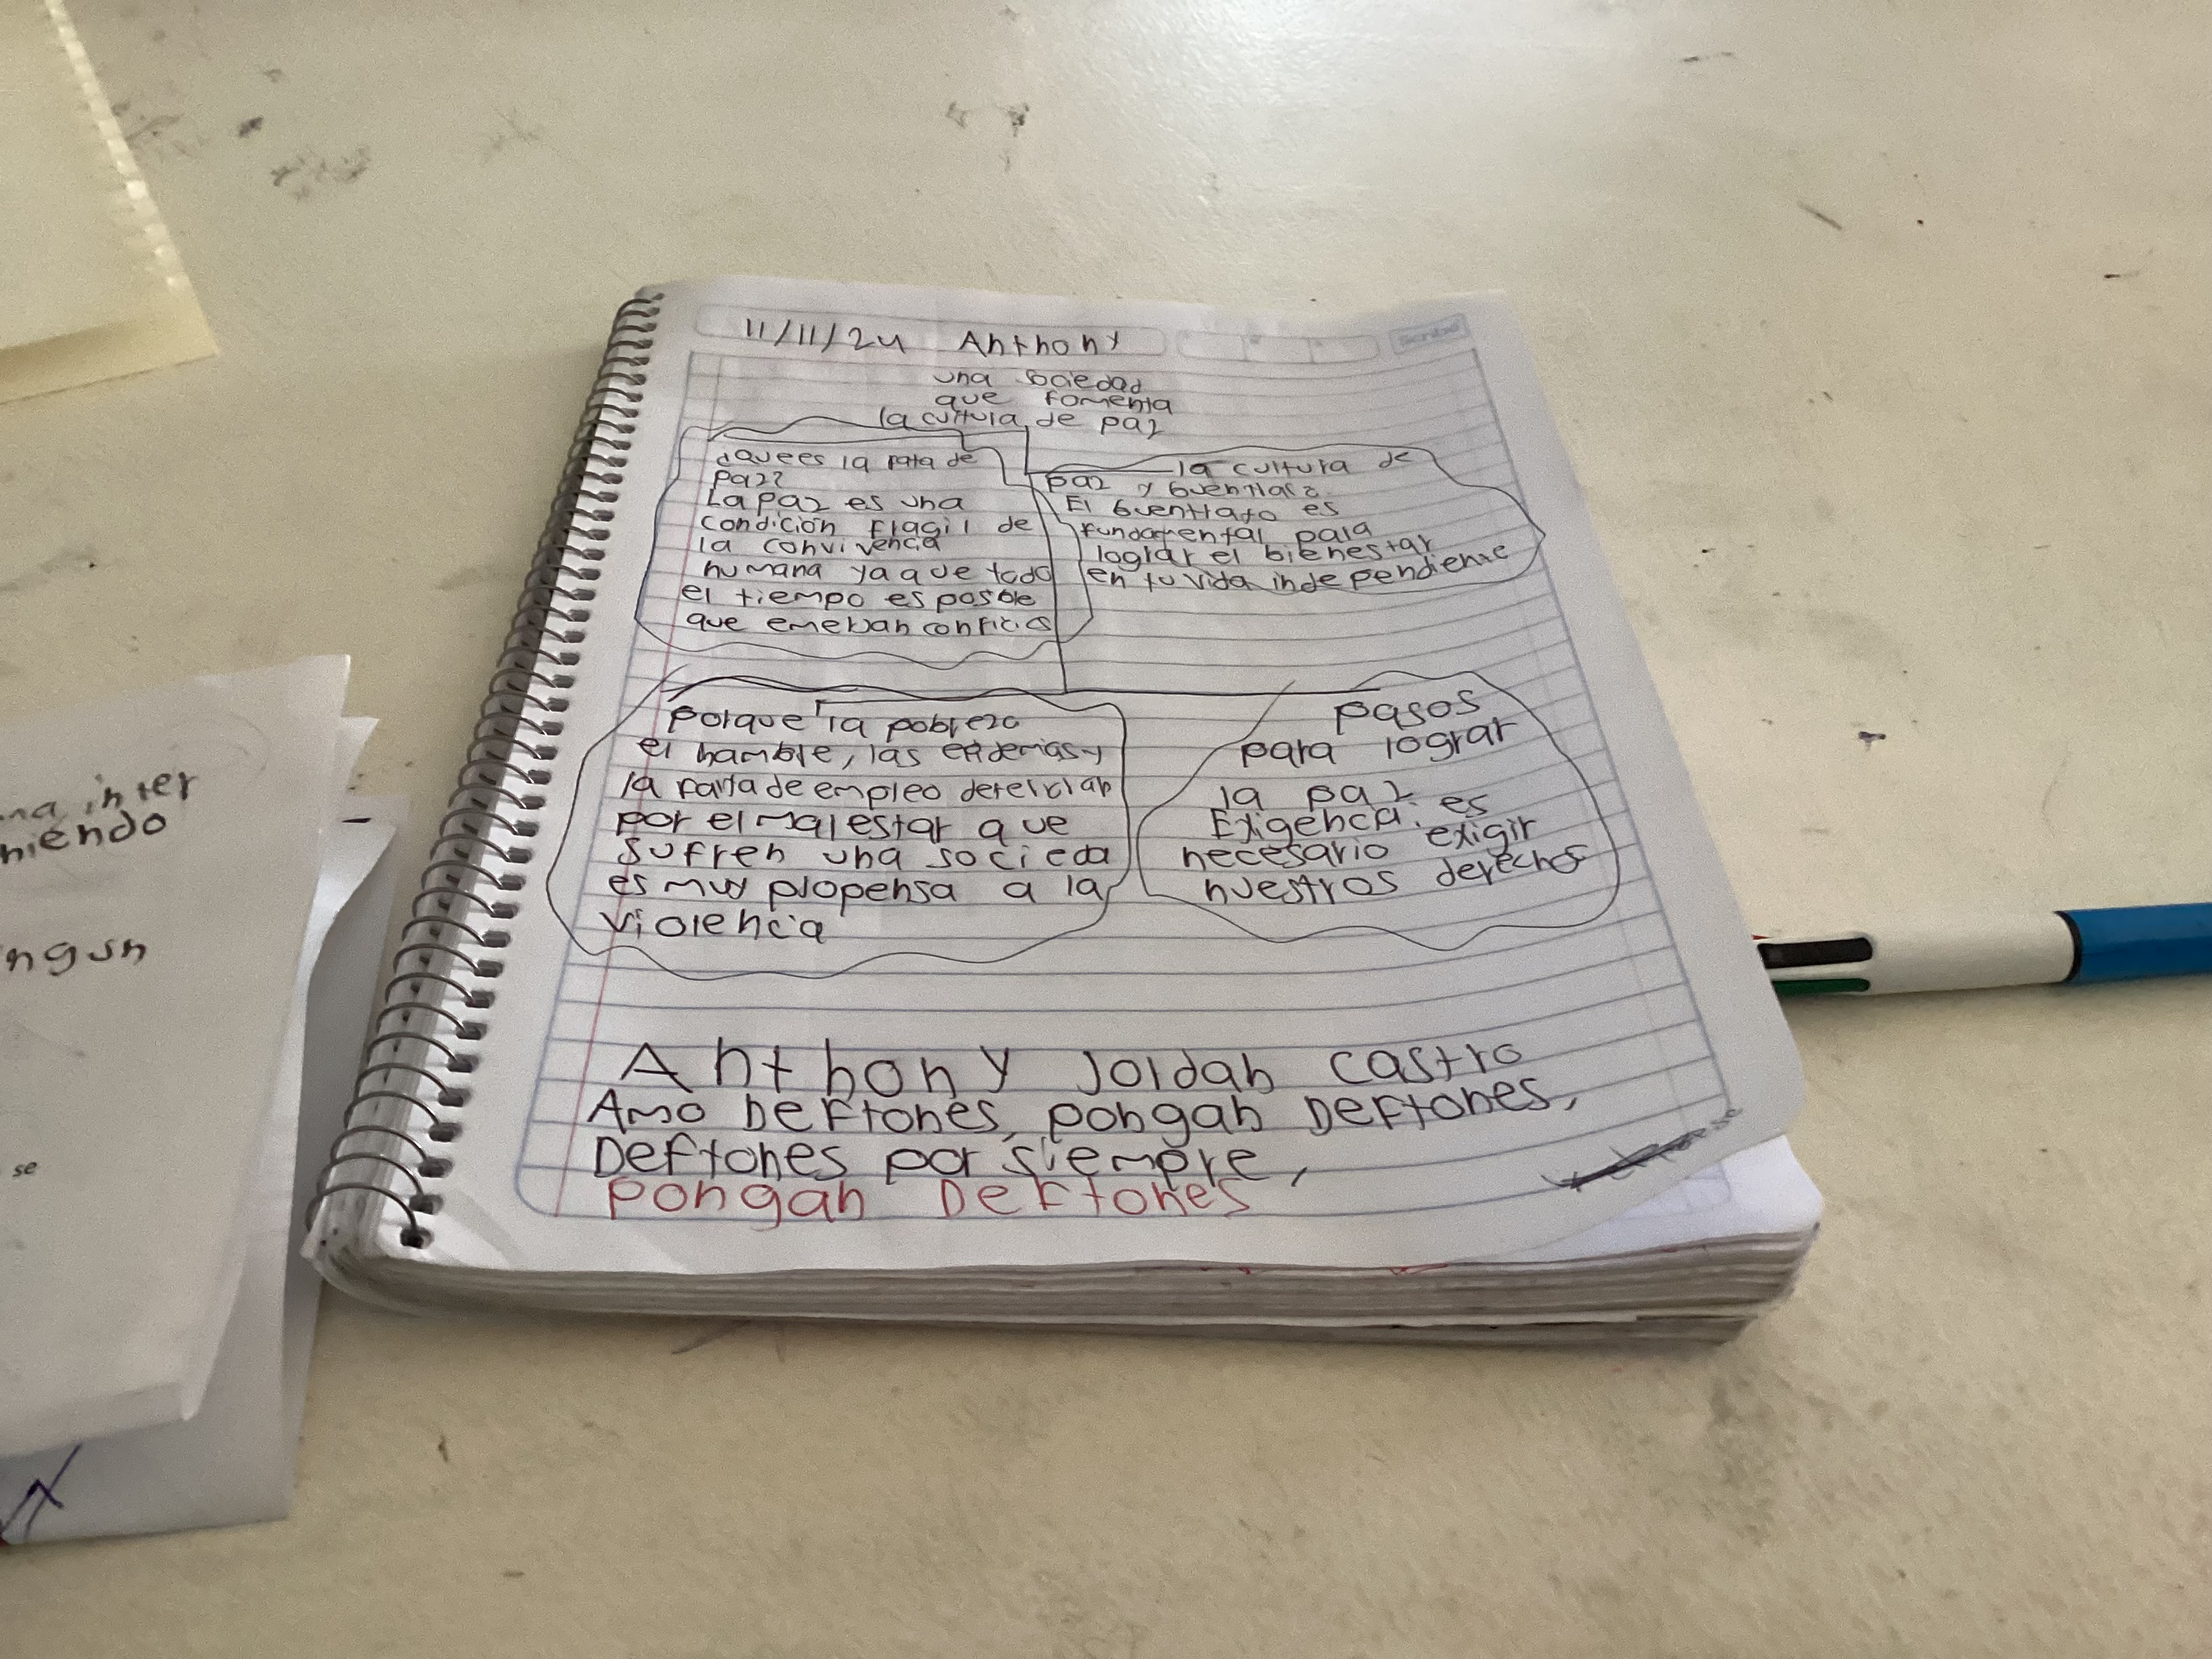 11/11/24 Anthony
una sociedad
que fomenta
la cultura de paz
¿Que es la falta de
paz?
La paz es una
condición fragil de
la convivencia
humana ya que todo
el tiempo es posble
que emerjan conflictos
la cultura de
paz y buentlato
El buentlato es
fundamental para
lograr el bienestar
en tu vida independiente
Porque la pobreza
el hambre, las epidemias y
la falta de empleo
por el malestar que
sufren una socieda
es muy propensa a la
violencia
pasos
para lograr
la paz
Exigencia: es
necesario exigir
nuestros derechos
Anthony Jordan Castro
Amo Deftones, pongan Deftones,
Deftones por siempre,
Pongan Deftones
na inter
niendo
ngun
se